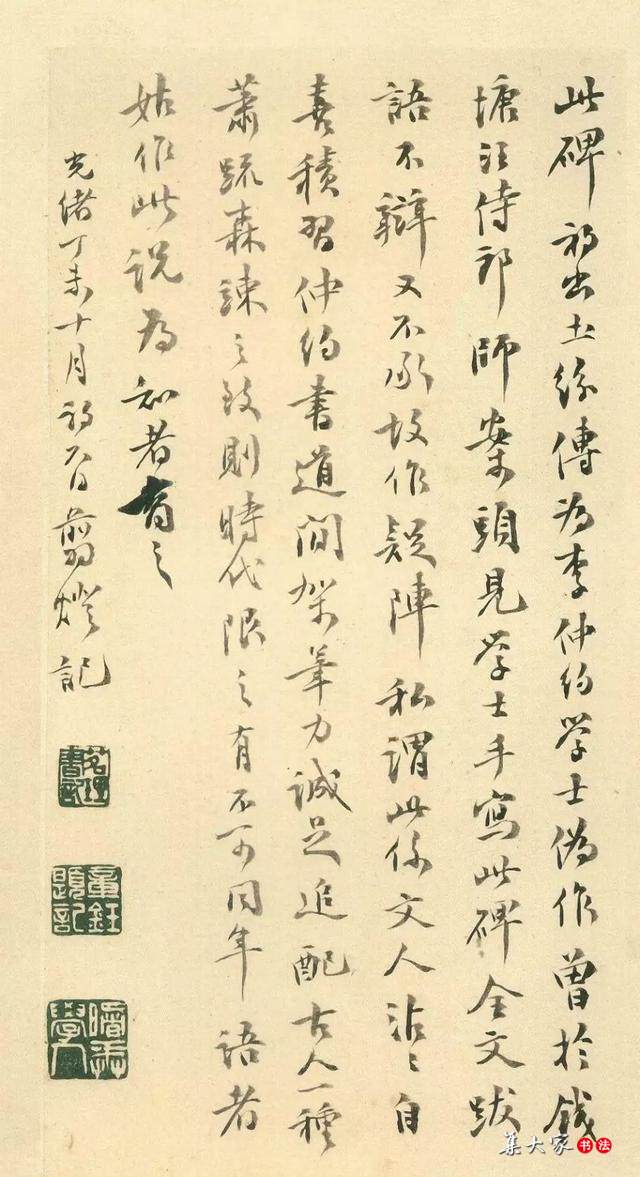 此碑初出土絲傳為李仲約學士偽作曾於錢
塘汪侍郎師案頭見學士手寫此碑全文跋
語不辯又不承故作疑陣私謂此係文人沾沾自
喜積習仲約書道間架筆力誠足追配古人一種
蕭疏森竦之致則時代限之有不可同年語者
姑作此說為知者商之
光緒丁未十月初六日翦燈記
茗理書記
章鈺題記
學人
集大家书法